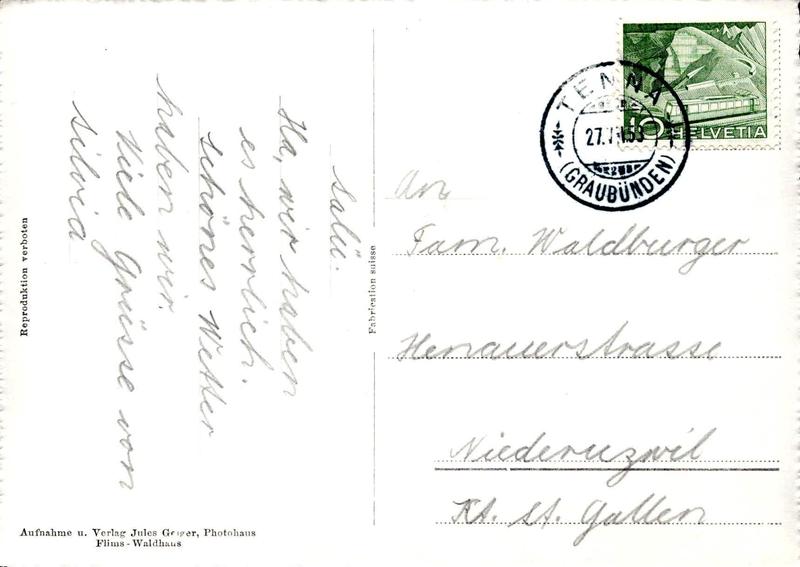 Salü.
Ha, wir haben
es herrlich.
schönes Wetter
haben wir.
Viele Grüsse von
Silvia
Reproduktion verboten
Aufnahme u. Verlag Jules Geiger, Photohaus
Flims - Waldhaus
Fabrication suisse
TENNA
(GRAUBÜNDEN)
10 HELVETIA
An
Fam. Waldburger
Henauerstrasse
Niederuzwil
Kt. St. Gallen